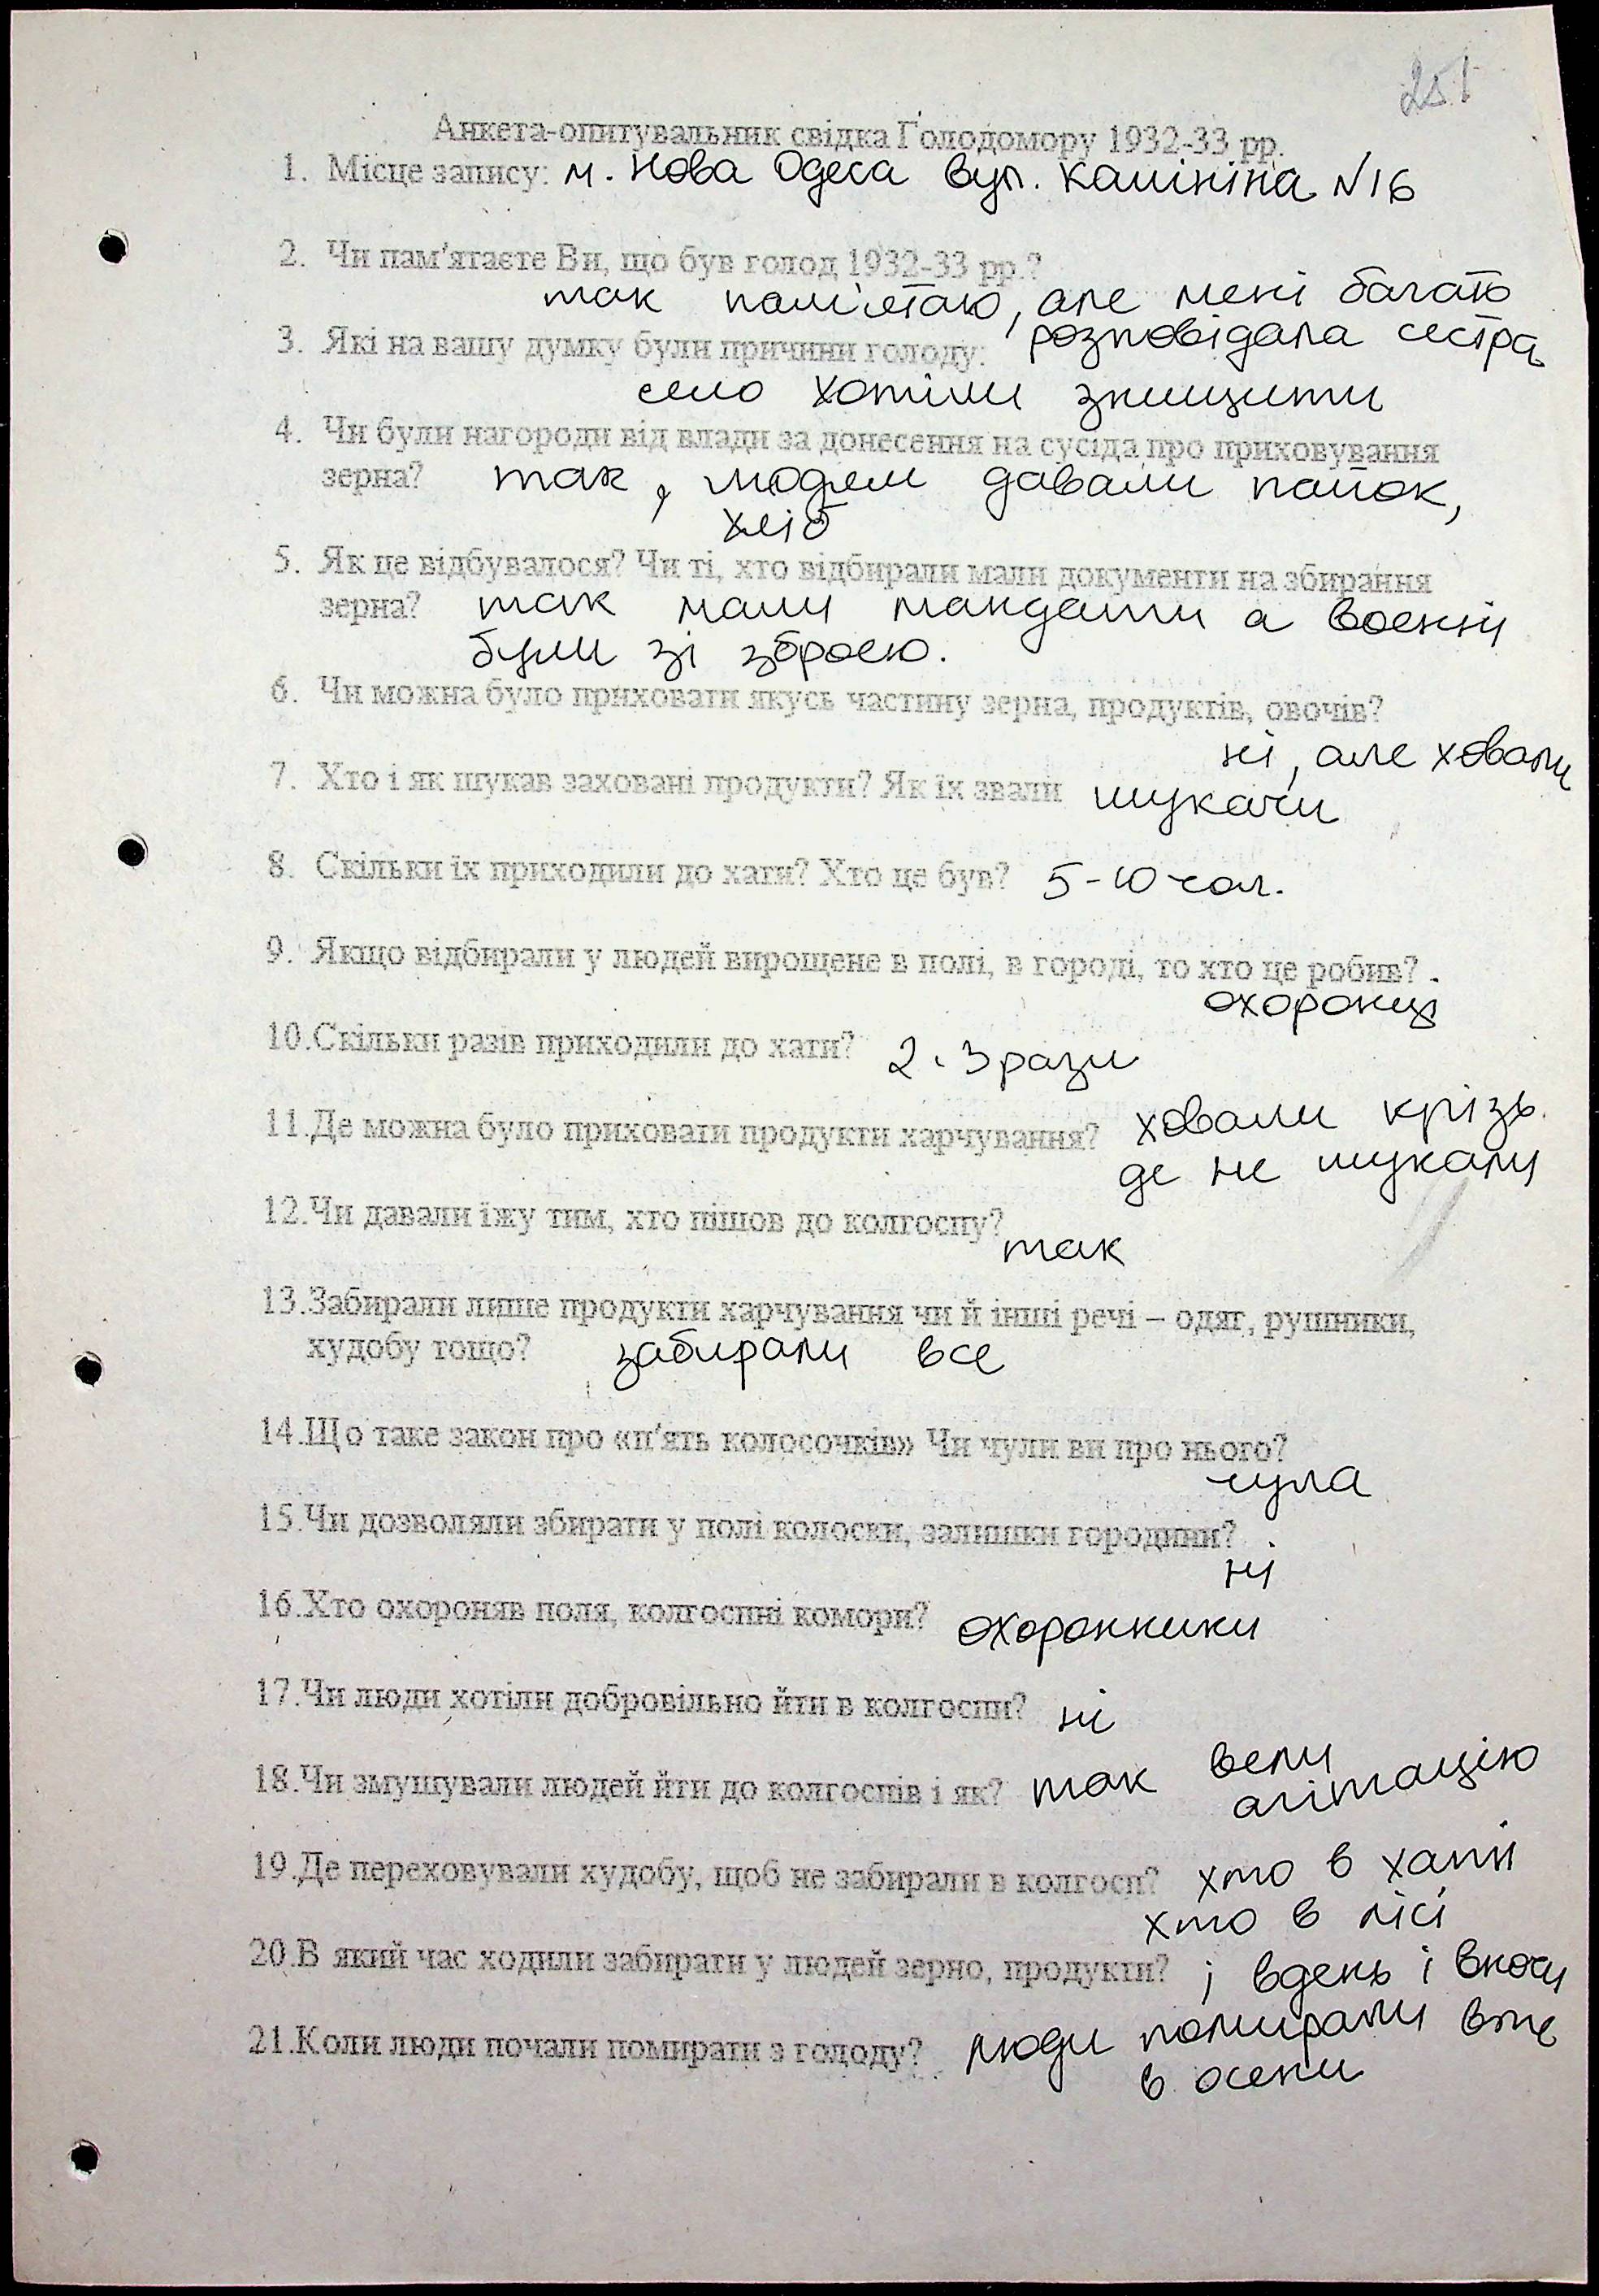 251
Анкета-опитувальник свідка Голодомору 1932-33 рр.
1. Місце запису: м. Нова Одеса вул. Калініна №16
2. Чи пам'ятаєте Ви, що був голод 1932-33 рр.?
так пам'ятаю, але мені багато
розповідала сестра
3. Які на вашу думку були причини голоду:
село хотіли знищити
4. Чи були нагороди від влади за донесення на сусіда про приховування
зерна? так, людям давали пайок,
хліб
5. Як це відбувалося? Чи ті, хто відбирали мали документи на збирання
зерна? так мали мандати а воєнні
були зі зброєю.
6. Чи можна було приховати якусь частину зерна, продуктів, овочів?
ні, але ховали
7. Хто і як шукав заховані продукти? Як їх звали шукачи
8. Скільки їх приходили до хати? Хто це був? 5-10 чол.
9. Якщо відбирали у людей вирощене в полі, в городі, то хто це робив?
охоронці
10.Скільки разів приходили до хати? 2-3 рази
11.Де можна було приховати продукти харчування? ховали крізь
де не шукали
12.Чи давали їжу тим, хто пішов до колгоспу?
так
13.Забирали лише продукти харчування чи й інші речі – одяг, рушники,
худобу тощо? забирали все
14.Що таке закон про «п'ять колосочків» Чи чули ви про нього?
чула
15.Чи дозволяли збирати у полі колоски, залишки городини?
ні
16.Хто охороняв поля, колгоспні комори? охоронники
17.Чи люди хотіли добровільно йти в колгоспи? ні
18.Чи змушували людей йти до колгоспів і як? так вели
агітацію
19.Де переховували худобу, щоб не забирали в колгосп? хто в хаті
хто в лісі
20.В який час ходили забирати у людей зерно, продукти? і вдень і вночі
21.Коли люди почали помирати з голоду? люди помирали вже
в осени